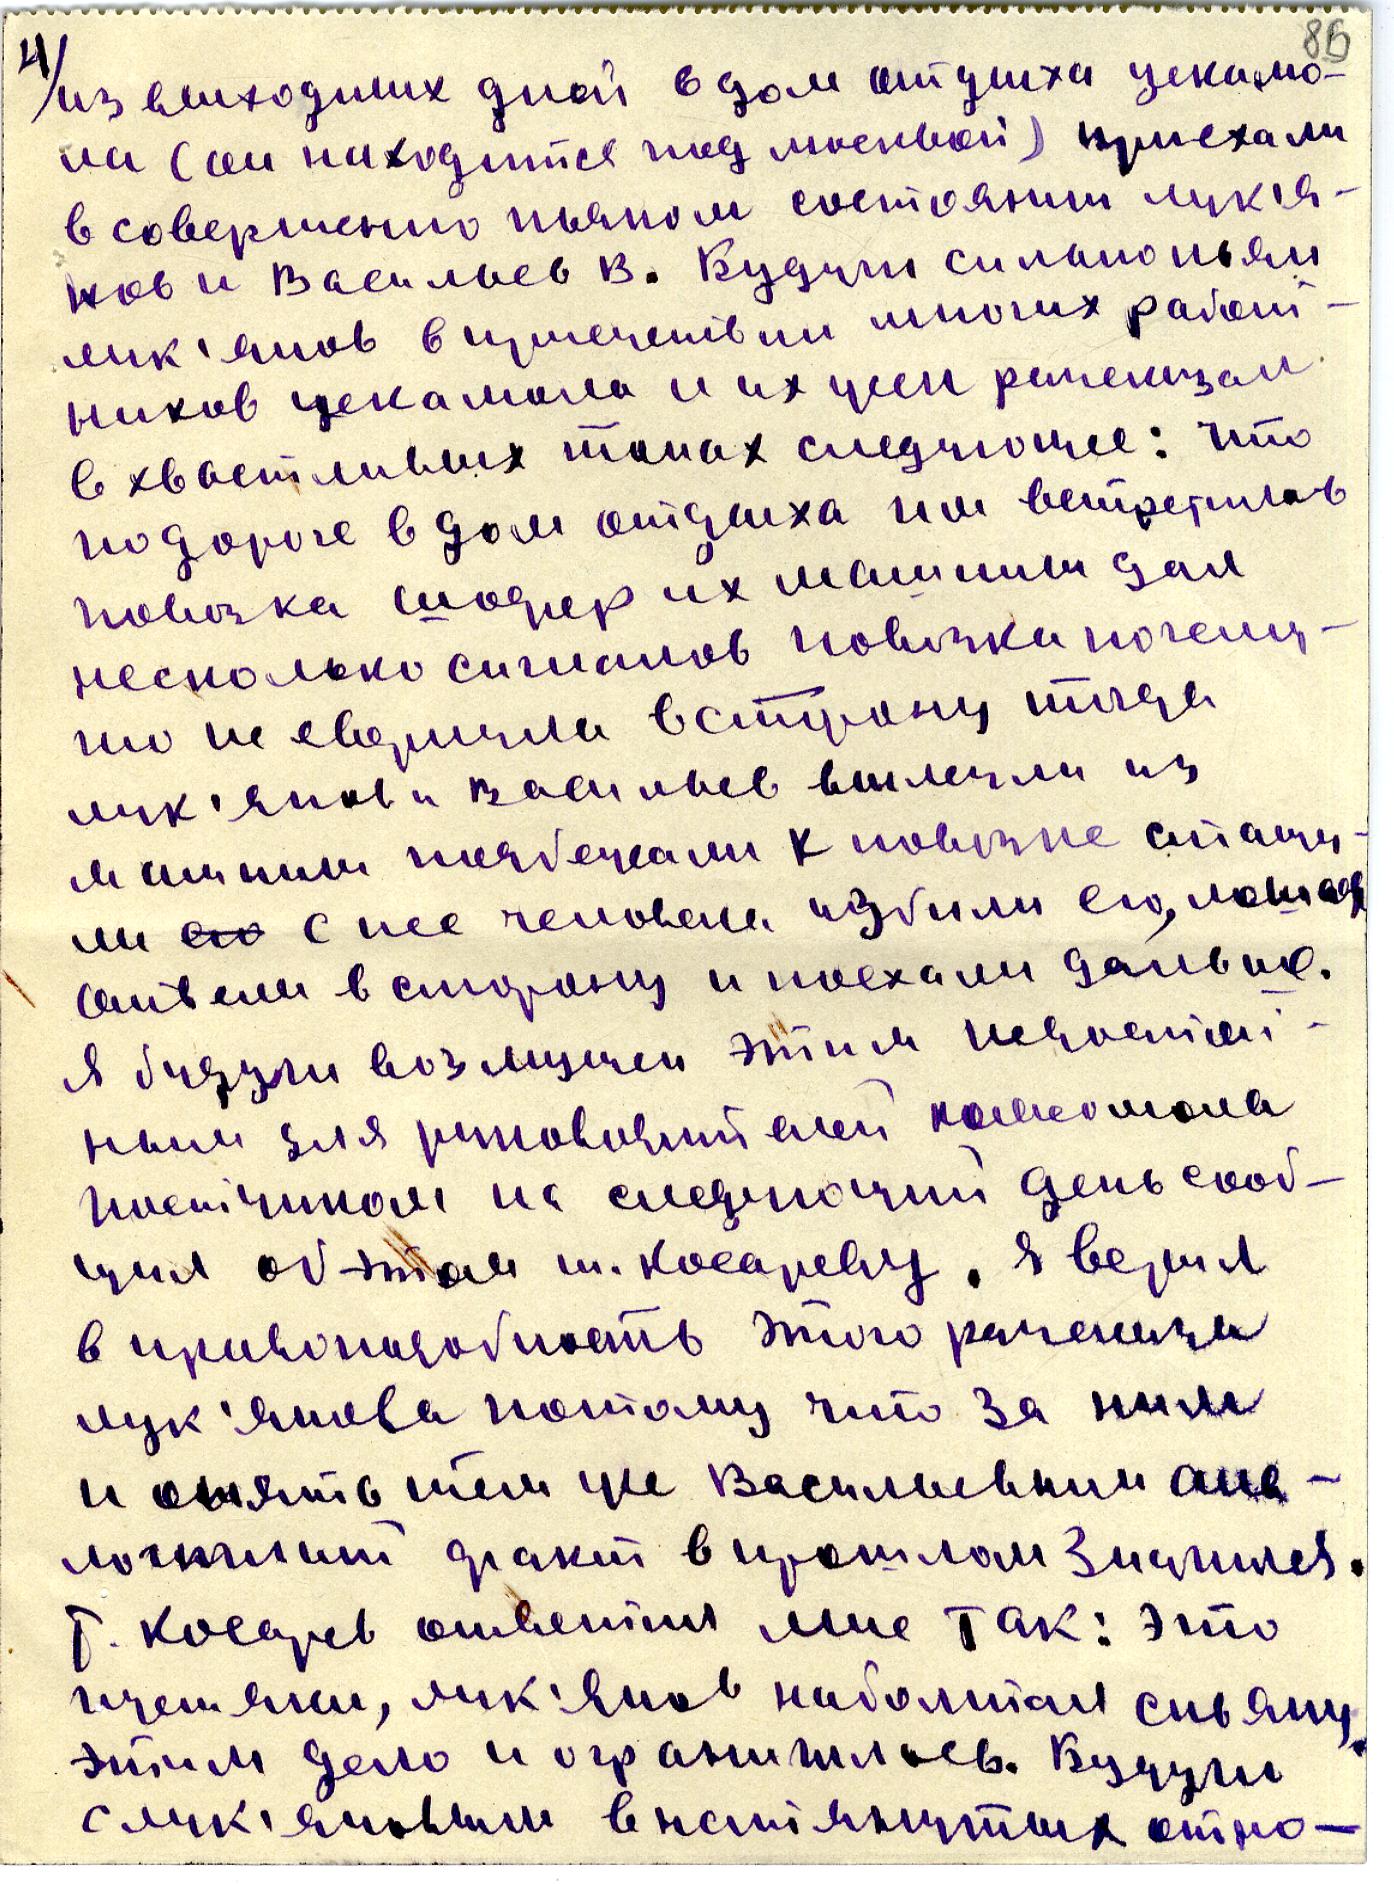 4/ 86
из выходных дней в дом отдыха цекамо-
ла (он находится под москвой) приехали
в совершенно пьяном состоянии лук'я-
нов и Васильев В. Будучи сильно пьян
лук'янов в присутствии многих работ-
ников цекамола и их жен рассказал
в хвастливых тонах следующее: что
по дороге в дом отдыха им встретилась
повозка шофер их машины дал
несколько сигналов повозка почему-
то не свернула в сторону тогда
лук'янов и Васильев вылезли из
машины подбежали к повозке стащи-
ли его с нее человека избили его, лошадь
отвели в сторону и поехали дальше.
Я будучи возмущен этим недостой-
ным для руководителей комсомола
поступком на следующий день сооб-
щил об этом т. Косареву. Я верил
в правоподобность этого рассказа
лук'янова потому что за ним
и опять тем же Васильевым ана-
логичный факт в прошлом значился.
Т. Косарев ответил мне так: это
пустяки, лук'янов наболтал спьяну.
этим дело и ограничилось. Будучи
с лук'яновым в натянутых отно-